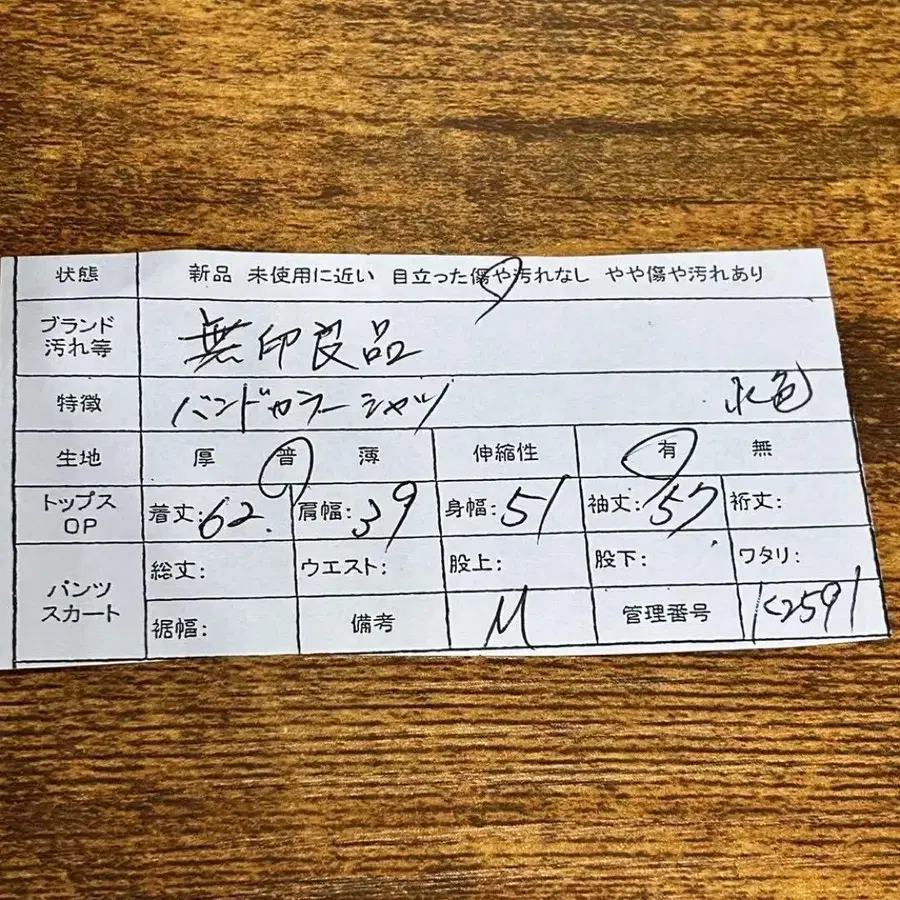 状態 新品 未使用に近い 目立った傷や汚れなし やや傷や汚れあり
ブランド
汚れ等 無印良品
特徴 バンドカラーシャツ 水色
生地 厚 普 薄 伸縮性 有 無
トップス
OP 着丈:62. 肩幅:39 身幅:51 袖丈:57 裄丈:
パンツ
スカート 総丈: ウエスト: 股上: 股下: ワタリ:
裾幅: 備考 M 管理番号 K2591